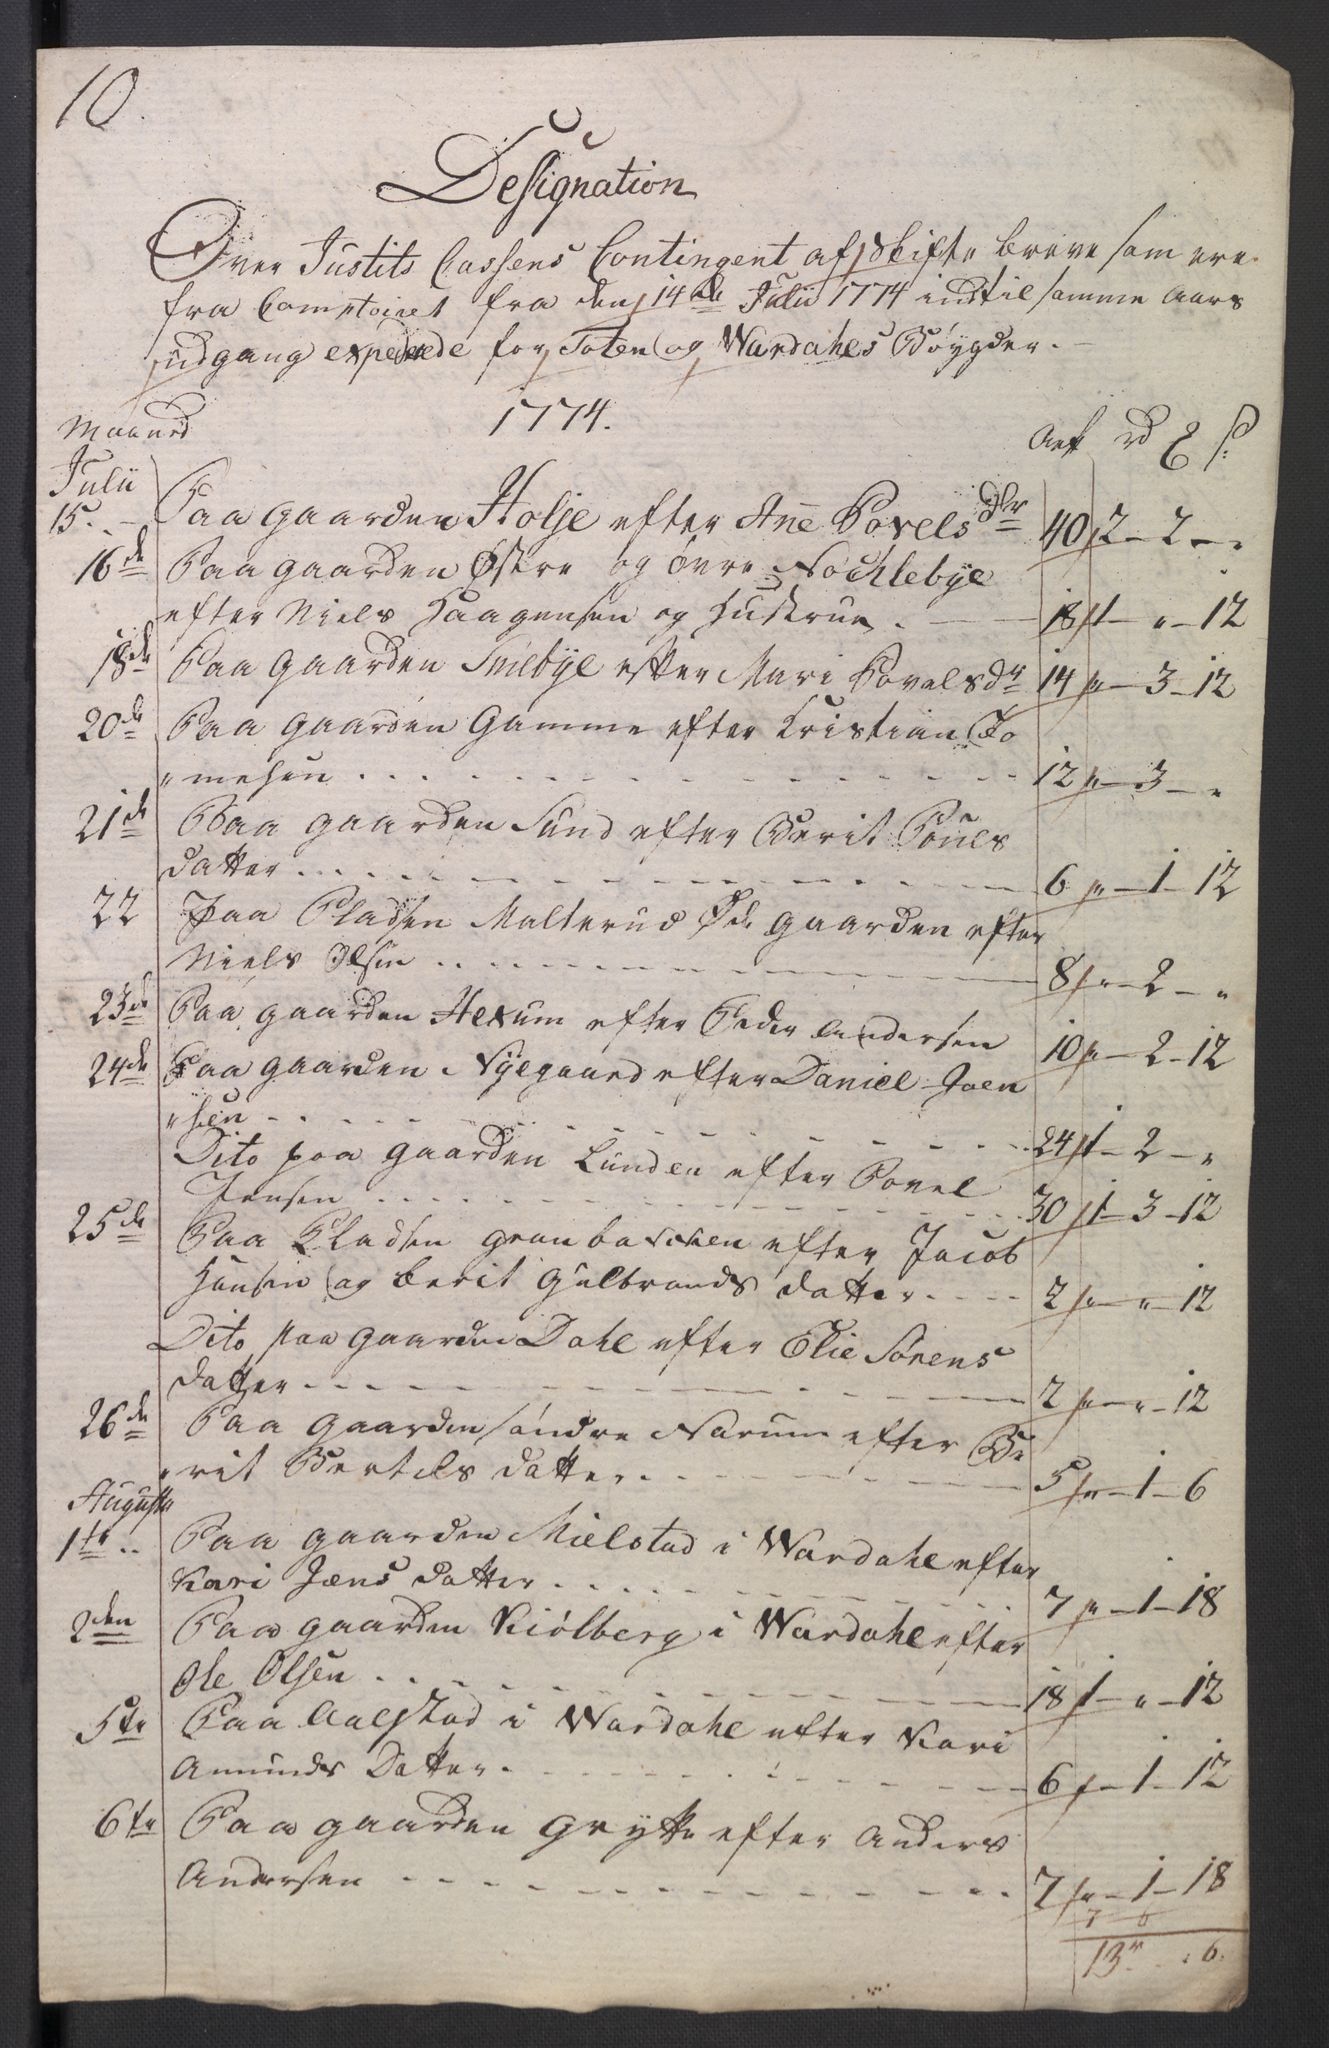 10.
Designation
Over Justits Cassens Contingent af Skifte breve som ere
fra Comptoiret fra den 14de Julii 1774 indtil samme Aars
udgang expederede for Toten og Wardahls Bøygder.
1774.
Maaned Ark rd ß
Julii
15. Paa gaarden Holje efter Ane Povels dtr 40 2 - 2 - "
16de Paa gaarden Østre og øvre Nochlebye
efter Niels Haagensen og Hustrue. 18 1 - " - 12
18de Paa gaarden Sniebye efter Mari Povelsdr 14 " - 3 - 12
20de Paa gaarden Gamme efter Kristian To
" mesen 12 " - 3 - "
21de Paa gaarden Sund efter Berit Pouels
datter 6 " - 1 - 12
22 Paa Pladsen Malterud Øde gaarden efter
Niels Olsen 8 " - 2 - "
23de Paa gaarden Hexum efter Peder Andersen 10 " - 2 - 12
24de Paa gaarden Nyegaard efter Daniel Joen
" sen 24 1 - 2 - "
Dito paa gaarden Lunden efter Povel
Jensen 30 1 - 3 - 12
25de Paa Pladsen granbachen efter Jacob
Hansen og berit Gulbrands datter 2 " - " - 12
Dito paa gaarden Dahl efter Elie Sørens
datter 2 " - " - 12
26de Paa gaarden søndre Narum efter Be
" rit Bertels datter 5 " - 1 - 6
Augusti
1te Paa gaarden Mielstad i Wardahl efter
Kari Jens datter 7 " - 1 - 18
2den Paa gaarden Kiølberg i Wardahl efter
Ole Olsen 18 1 - " - 12
5te Paa Aalstad i Wardahl efter Kari
Amunds Datter 6 " - 1 - 12
6te Paa gaarden Grytte efter Anders
Andersen 7 " - 1 - 18
13 " 6.